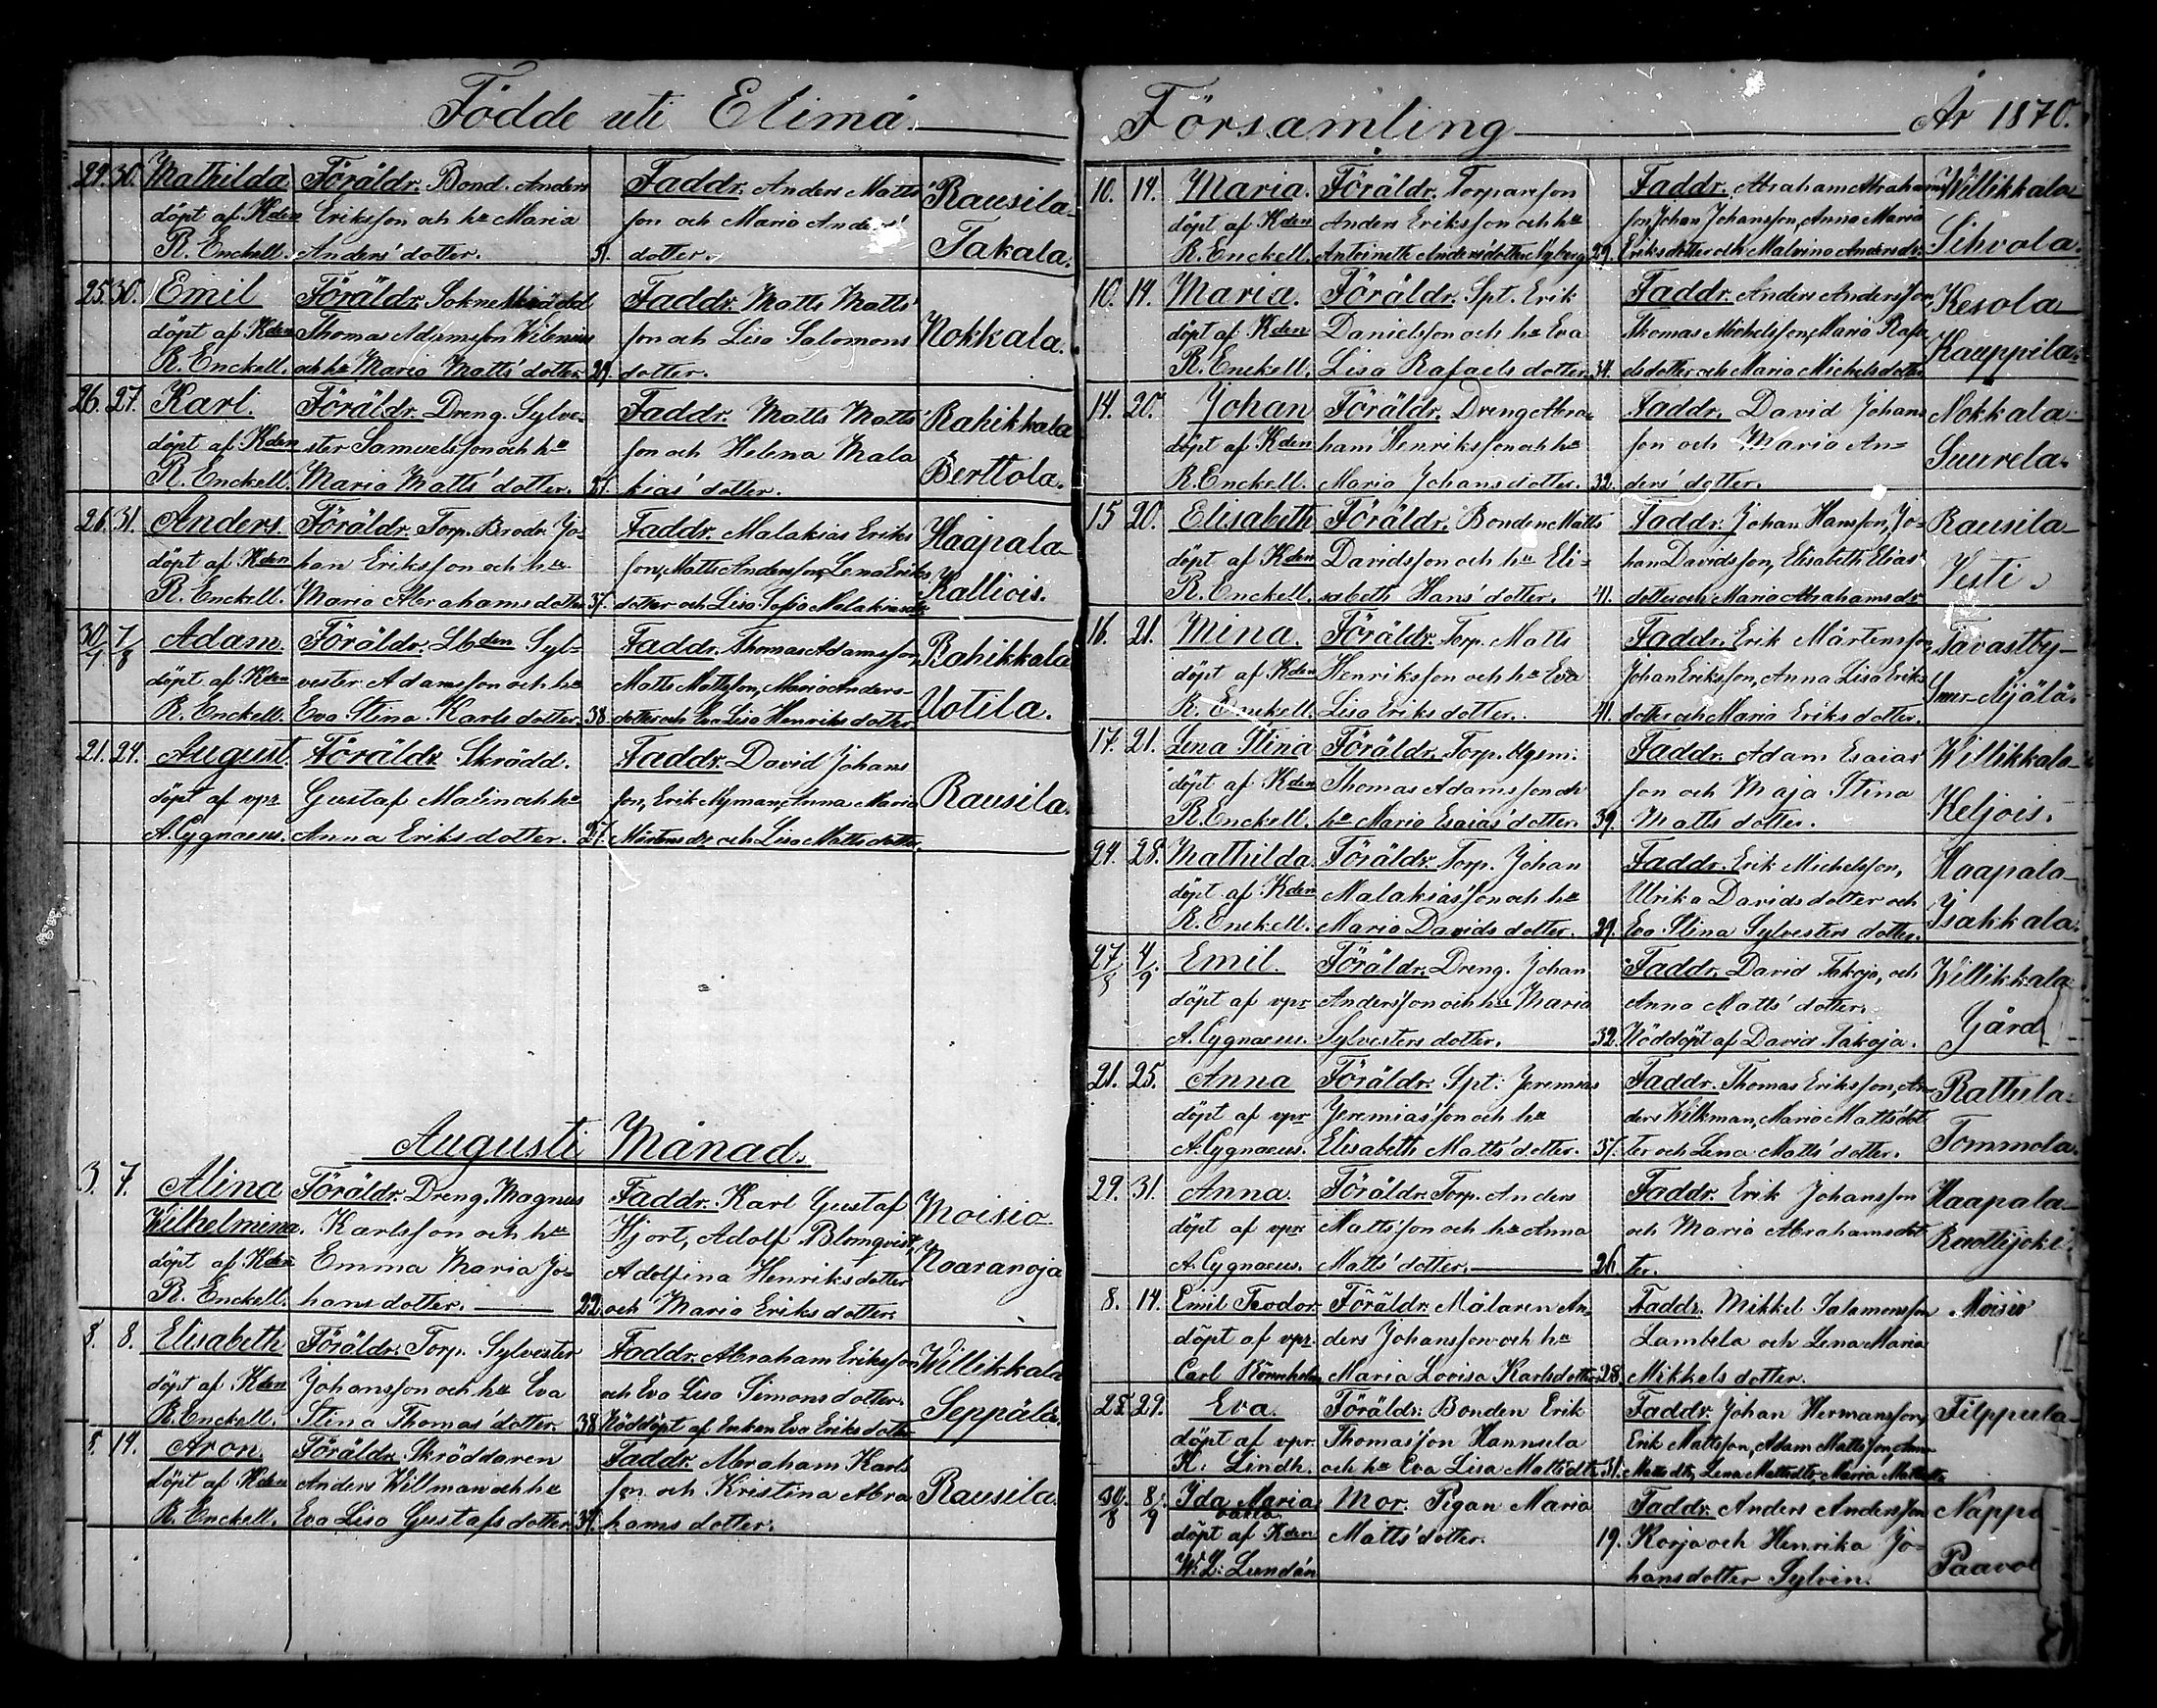 Födde uti Elimä.
29. 30. Mathilda Föräldr. Bond. Anders Faddr. Anders Matts Rausila
döpt af Kden Eriksson och hu Maria son och Maria Anders'
R. Enckell. Anders'dotter. 31. dotter. Takala.
25. 30. Emil Föräldr. Faddr. Matts Matts'
döpt af Kden Thomas Adamsson Wilenius son och Lisa Salomons Nokkala.
R. Enckell. och hu Maria Matts'dotter. 29. dotter.
26. 27. Karl. Föräldr. Dreng. Sylve- Faddr. Matts Matts' Rahikkala
döpt af Kden ster Samuelsson och hu son och Helena Mala
R. Enckell. Maria Matts'dotter. 25. kias'dotter. Berttola.
26. 31. Anders. Föräldr. Torp. Brodr. Jo- Faddr. Malakias Eriks Haapala
döpt af Kden han Eriksson och hu son, Matts Andersson, Lena Eriks
R. Enckell. Maria Abrahamsdotter 37. dotter och Lisa Sofia Malakiasdr Kalliois.
30/7 7/8 Adam. Föräldr. Lbden Syl- Faddr. Thomas Adamsson, Rahikkala
döpt af Kden vester Adamsson och hu Matts Mattsson, Maria Anders
R. Enckell. Eva Stina Karlsdotter. 38. dotter och Eva Lisa Henriksdotter Uotila.
21. 24. August Föräldr. Skrädd. Faddr. David Johans
döpt af vpr Gustaf Malin och hu son, Erik Nyman, Anna Maria Rausila.
A. Cygnaeus. Anna Eriksdotter. 27. Mårtensdr och Lisa Mattsdotter.
Augusti Månad.
3. 7. Alina Föräldr. Dreng. Magnus Faddr. Karl Gustaf Moisio
Wilhelmina. Karlsson och hu Hjort, Adolf Blomqvist,
döpt af Kden Emma Maria Jo- Adolfina Henriksdotter Naaranoja
R. Enckell. hansdotter. 22. och Maria Eriksdotter.
8. 8. Elisabeth Föräldr. Torp. Sylvester Faddr. Abraham Eriksson Willikkala
döpt af Kden Johansson och hu Eva och Eva Lisa Simonsdotter.
R. Enckell. Stina Thomas'dotter. 38 Nöddöpt af Enkan Eva Eriksdotter Seppälä.
8. 14. Aron. Föräldr. Skräddaren Faddr. Abraham Karls
döpt af Kden Anders Willman och hu son och Kristina Abra Rausila.
R. Enckell. Eva Lisa Gustafsdotter 34. hamsdotter.
Församling År 1870.
10. 14. Maria. Föräldr. Torpareson Faddr. Abraham Abrahams Willikkala
döpt af Kden Anders Eriksson och hu son, Johan Johansson, Anna Maria
R. Enckell. Antoinette Anders'dotter Nyberg 29. Eriksdotter och Malvina Andersdr. Sihvola.
10. 14. Maria. Föräldr. Spt. Erik Faddr. Anders Andersson, Kesola
döpt af Kden Danielsson och hu Eva Thomas Michelsson, Maria Rafa
R. Enckell. Lisa Rafaelsdotter. 34. elsdotter och Maria Michelsdotter Kauppila.
14. 20. Johan Föräldr. Dreng Abra- Faddr. David Johans Nokkala
döpt af Kden ham Henriksson och hu son och Maria An-
R. Enckell. Maria Johansdotter. 32. ders'dotter. Suurela.
15 20. Elisabeth Föräldr. Bonden Matts Faddr. Johan Hansson, Jo- Rausila
döpt af Kden Davidsson och hu Eli- han Davidsson, Elisabeth Elias'
R. Enckell. sabeth Hans'dotter. 41. dotter och Maria Abrahamsdr Vesti
16. 21. Mina. Föräldr. Torp. Matts Faddr. Erik Mårtensson, Tavastby
döpt af Kden Henriksson och hu Eva Johan Eriksson, Anna Lisa Eriks
R. Enckell. Lisa Eriksdotter. 41. dotter och Maria Eriksdotter.
17. 21. Lena Stina Föräldr. Torp. Hysm. Faddr. Adam Esaias' Willikkala
döpt af Kden Thomas Adamsson och son och Maja Stina
R. Enckell. hu Maria Esaias'dotter. 39. Mattsdotter. Keljois.
24. 28. Mathilda. Föräldr. Torp. Johan Faddr. Erik Michelsson, Haapala
döpt af Kden Malakiasson och hu Ulrika Davidsdotter och
R. Enckell. Maria Davidsdotter. 29. Eva Stina Sylvestersdotter. Isakkala.
27/8 4/9 Emil. Föräldr. Dreng. Johan Faddr. David Takoja, och Willikkala
döpt af vpr Andersson och hu Maria Anna Matts'dotter.
A. Cygnaeus. Sylvestersdotter. 32. Nöddöpt af David Takoja. Gård
21. 25. Anna Föräldr. Spt. Jeremias Faddr. Thomas Eriksson, An- Rattula
döpt af vpr Jeremiasson och hu ders Wilkman, Maria Matts'dot
A. Cygnaeus. Elisabeth Matts'dotter. 37. ter och Lena Matts'dotter. Tommola.
29. 31. Anna. Föräldr. Torp. Anders Faddr. Erik Johansson Haapala
döpt af vpr Mattsson och hu Anna och Maria Abrahamsdot
A. Cygnaeus. Matts'dotter. 26. ter.
8. 14. Emil Teodor. Föräldr. Målaren An- Faddr. Mikkel Salamonsson Moisio
döpt af vpr. ders Johansson och hu Lambela och Lena Maria
Carl Maria Lovisa Karlsdotter 28. Mikkelsdotter.
25. 29. Eva. Föräldr. Bonden Erik Faddr. Johan Hermansson, Filppula
döpt af vpr. Thomasson Hannula Erik Mattsson, Adam Mattsson, Anna
K. Lindh. och hu Eva Lisa Mattsdtr 31. Mattsdtr, Lena Mattsdtr, Maria Mattsdtr
30/8 8/9 Ida Maria Mor. Pigan Maria Faddr. Anders Andersson Nappa
oäkta
döpt af Kden Matts'dotter. 19. Korja och Henrika Jo-
W. L. Lundán hansdotter Sylvin. Paavo